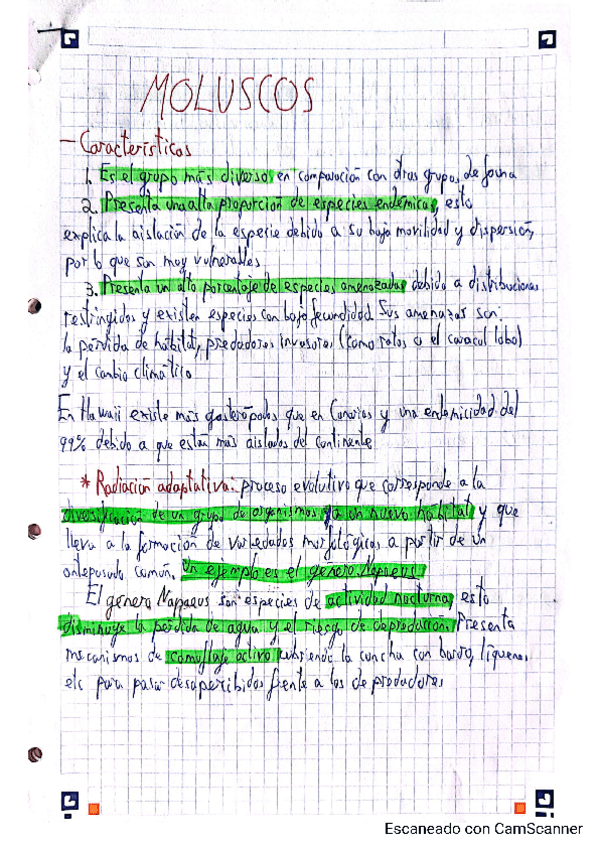 MOLUSCOS
- Características
1. Es el grupo más diverso en comparación con otros grupos de fauna
2. Presenta una alta proporción de especies endémicas, esto
explica la aislación de la especie debido a su baja movilidad y dispersión,
por lo que son muy vulnerables
3. Presenta un alto porcentaje de especies amenazadas debido a distribuciones
restringidas y existen especies con baja fecundidad. Sus amenazas son:
la pérdida de hábitat, predadores invasores (como ratas o el caracol lobo)
y el cambio climático
En Hawaii existe más gasterópodos que en Canarias y una endemicidad del
99% debido a que están más aislados del continente
* Radiación adaptativa: proceso evolutivo que corresponde a la
diversificación de un grupo de organismos a un nuevo hábitat y que
lleva a la formación de variedades morfológicas a partir de un
antepasado común. Un ejemplo es el género Napaeus
El género Nappaeus son especies de actividad nocturna, esto
disminuye la pérdida de agua y el riesgo de depredación. Presenta
mecanismos de camuflaje activo cubriendo la concha con barro, líquenes,
etc para pasar desapercibidos frente a los depredadores
Escaneado con CamScanner